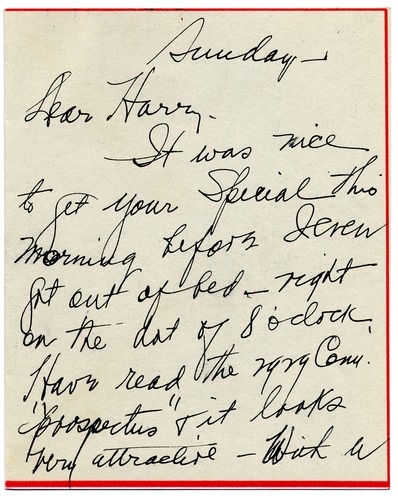 Sunday—
Dear Harry.
It was nice
to get your Special this
morning before I even
got out of bed — right
on the dot of 8 o'clock.
Have read the
"prospectus" & it looks
very attractive — With a